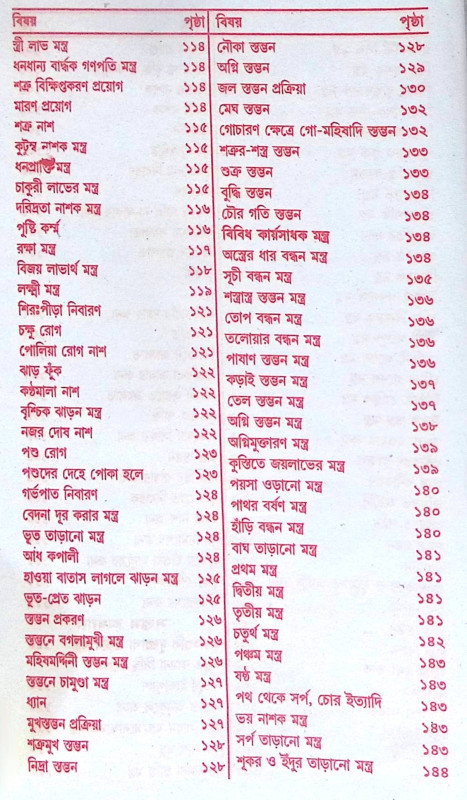 বিষয় পৃষ্ঠা
স্ত্রী লাভ মন্ত্র ১১৪
ধনধান্য বার্ধক গণপতি মন্ত্র ১১৪
শত্রু বিক্ষিপ্তকরণ প্রয়োগ ১১৪
মারণ প্রয়োগ ১১৪
শত্রু নাশ ১১৫
কুটুম্ব নাশক মন্ত্র ১১৫
ধনপ্রাপ্তি মন্ত্র ১১৫
চাকুরী লাভের মন্ত্র ১১৫
দরিদ্রতা নাশক মন্ত্র ১১৬
পুষ্টি কর্ম্ম ১১৬
রক্ষা মন্ত্র ১১৭
বিজয় লাভার্থ মন্ত্র ১১৮
লক্ষ্মী মন্ত্র ১১৯
শিরঃপীড়া নিবারণ ১২১
চক্ষু রোগ ১২১
পোলিয়া রোগ নাশ ১২১
ঝাড় ফুঁক ১২২
কণ্ঠমালা নাশ ১২২
বৃশ্চিক ঝাড়ন মন্ত্র ১২২
নজর দোষ নাশ ১২২
পশু রোগ ১২৩
পশুদের দেহে পোকা হলে ১২৩
গর্ভপাত নিবারণ ১২৪
বেদনা দূর করার মন্ত্র ১২৪
ভূত তাড়ানো মন্ত্র ১২৪
আধ কপালী ১২৪
হাওয়া বাতাস লাগলে ঝাড়ন মন্ত্র ১২৫
ভূত-প্রেত ঝাড়ন ১২৫
স্তম্ভন প্রকরণ ১২৬
স্তম্ভনে বগলামুখী মন্ত্র ১২৬
মহিষমর্দ্দিনী স্তম্ভন মন্ত্র ১২৬
স্তম্ভনে চামুণ্ডা মন্ত্র ১২৭
ধ্যান ১২৭
মুখস্তম্ভন প্রক্রিয়া ১২৭
শত্রুমুখ স্তম্ভন ১২৮
নিদ্রা স্তম্ভন ১২৮
বিষয় পৃষ্ঠা
নৌকা স্তম্ভন ১২৮
অগ্নি স্তম্ভন ১২৯
জল স্তম্ভন প্রক্রিয়া ১৩০
মেঘ স্তম্ভন ১৩২
গোচারণ ক্ষেত্রে গো-মহিষাদি স্তম্ভন ১৩২
শত্রুর-শস্ত্র স্তম্ভন ১৩৩
শুক্র স্তম্ভন ১৩৩
বুদ্ধি স্তম্ভন ১৩৪
চৌর গতি স্তম্ভন ১৩৪
বিবিধ কার্যসাধক মন্ত্র ১৩৪
অস্ত্রের ধার বন্ধন মন্ত্র ১৩৪
সূচী বন্ধন মন্ত্র ১৩৫
শস্ত্রাস্ত্র স্তম্ভন মন্ত্র ১৩৬
তোপ বন্ধন মন্ত্র ১৩৬
তলোয়ার বন্ধন মন্ত্র ১৩৬
পাষাণ স্তম্ভন মন্ত্র ১৩৬
কড়াই স্তম্ভন মন্ত্র ১৩৭
তেল স্তম্ভন মন্ত্র ১৩৭
অগ্নি স্তম্ভন মন্ত্র ১৩৮
অগ্নিমুক্তারণ মন্ত্র ১৩৯
কুস্তিতে জয়লাভের মন্ত্র ১৩৯
পয়সা ওড়ানো মন্ত্র ১৪০
পাথর বর্ষণ মন্ত্র ১৪০
হাঁড়ি বন্ধন মন্ত্র ১৪০
বাঘ তাড়ানো মন্ত্র ১৪১
প্রথম মন্ত্র ১৪১
দ্বিতীয় মন্ত্র ১৪১
তৃতীয় মন্ত্র ১৪১
চতুর্থ মন্ত্র ১৪২
পঞ্চম মন্ত্র ১৪৩
ষষ্ঠ মন্ত্র ১৪৩
পথ থেকে সর্প, চোর ইত্যাদি
ভয় নাশক মন্ত্র ১৪৩
সর্প তাড়ানো মন্ত্র ১৪৩
শূকর ও ইঁদুর তাড়ানো মন্ত্র ১৪৪